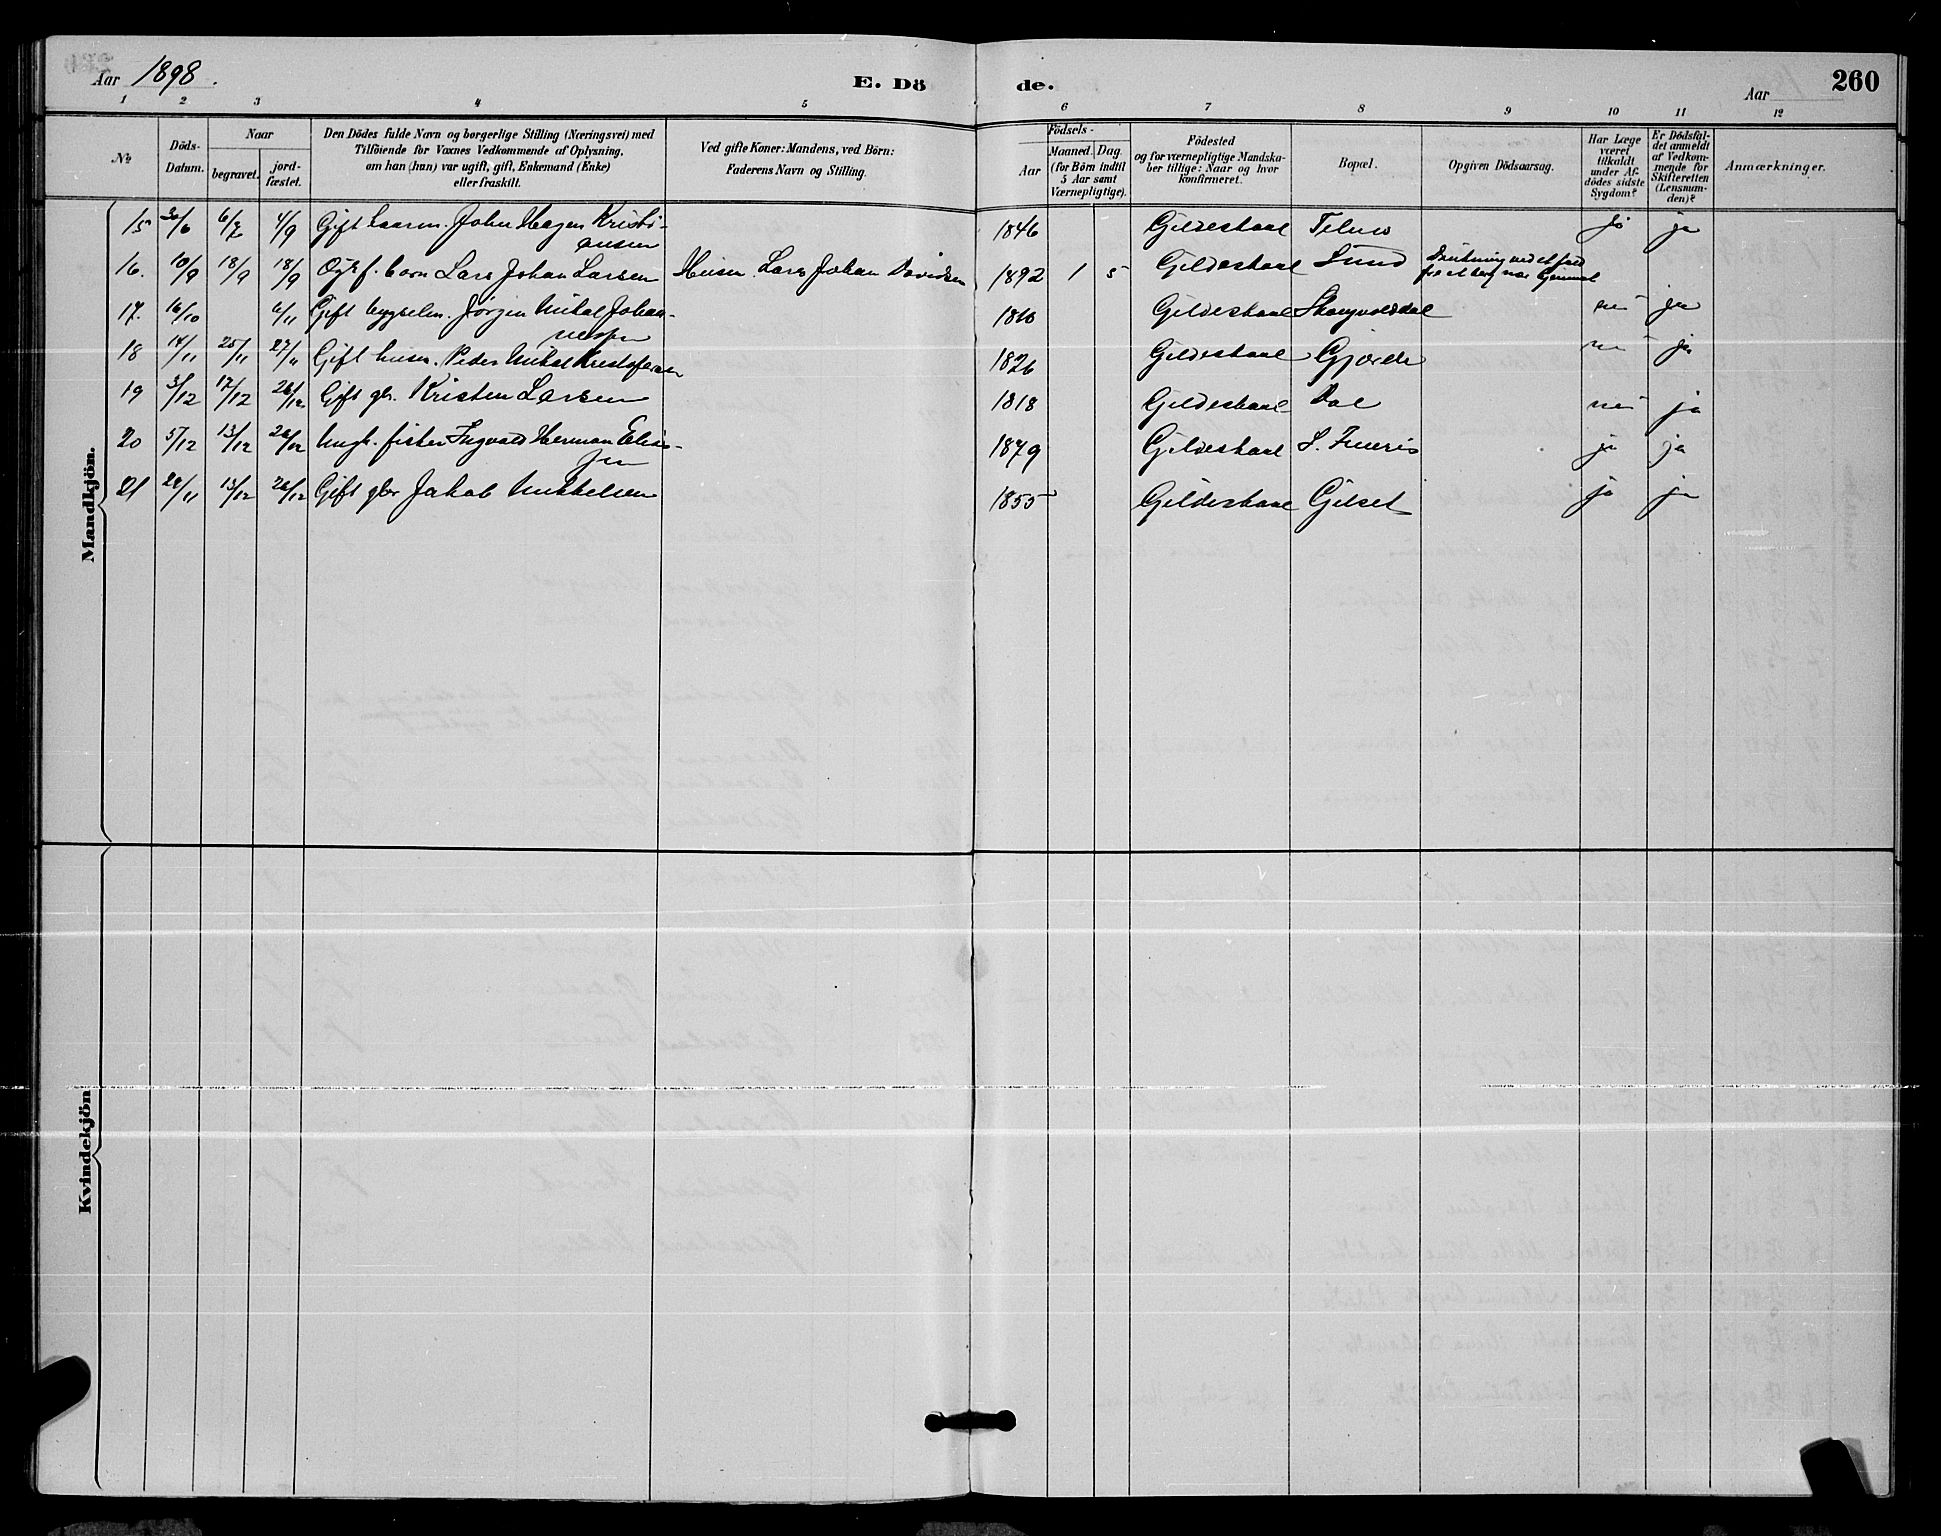 Aar 1898.
E. Dö
de.
Aar
260
1 2 3 4 5 6 7 8 9 10 11 12
No
Döds-Datum.
Naar
begravet.
jord-fæstet.
Den Dödes fulde Navn og borgerlige Stilling (Næringsvei) med
Tilföiende for Voxnes Vedkommende af Oplysning,
om han (hun) var ugift, gift, Enkemand (Enke)
eller fraskilt.
Ved gifte Koner: Mandens, ved Börn:
Faderens Navn og Stilling.
Födsels-
Aar
Maaned. Dag.
(for Börn indtil
5 Aar samt
Værnepligtige).
Födested
og for værnepligtige Mandska-
ber tillige: Naar og hvor
konfirmeret.
Bopæl.
Opgiven Dödsaarsag.
Har Læge
været
tilkaldt
under Af-
dödes sidste
Sygdom?
Er Dödsfal-
det anmeldt
af Vedkom-
mende for
Skifteretten
(Lensman-
den)?
Anmærkninger.
Mandkjön.
15 30/6 6/7 4/9 Gift John Hagen Kristi-
ansen 1846 Gildeskaal ja ja
16. 10/9 18/9 18/9 Ægtf. barn Lars Johan Larsen Husm. Lars Johan Davidsen 1892 1 5 Gildeskaal Sund
17. 16/10 6/11 Gift Jørgen Mikal Johan-
nessen Gildeskaal nei ja
18 14/11 25/11 27/11 Gift husm. Peder Mikal Kristofersen 1826 Gildeskaal nei ja
19 3/12 17/12 26/12 Gift gbr. Kristen Larsen 1818 Gildeskaal Dal nei ja
20 5/12 13/12 26/12 Ungk. fisker Ingvald Herman Elias-
sen 1879 Gildeskaal ja ja
21 29/11 13/12 26/12 Gift gbr Jakob Mikkelsen 1855 Gildeskaal Gjelset ja ja
Kvindekjön